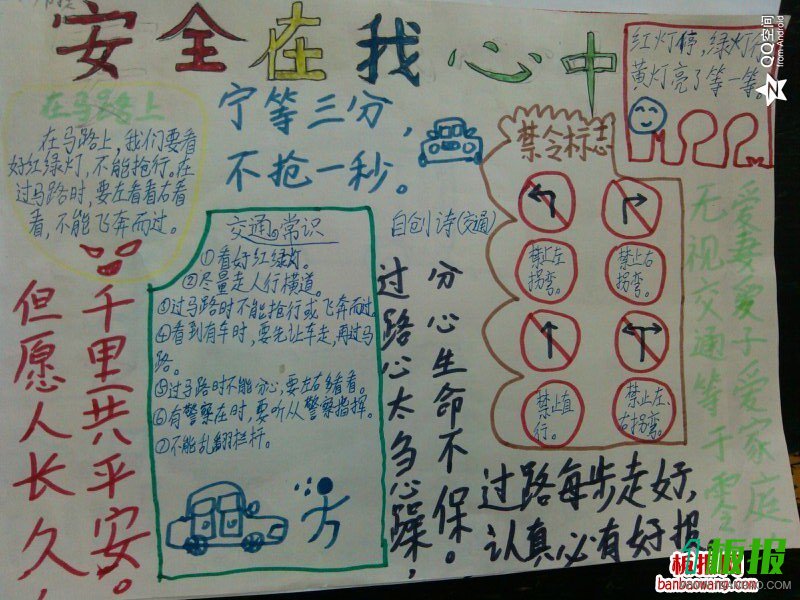 安全在我心中
在马路上
在马路上，我们要看
好红绿灯，不能抢行。在
过马路时，要左看看右看
看，不能飞奔而过。
宁等三分，
不抢一秒。
红灯停，绿灯行
黄灯亮了等一等。
QQ空间
from Android
禁令标志
禁止左
拐弯。
禁止右
拐弯。
禁止直
行。
禁止左、
右拐弯。
交通常识
①看好红绿灯。
②尽量走人行横道。
③过马路时不能抢行或飞奔而过。
④看到有车时，要先让车走，再过马
路。
⑤过马路时不能分心，要左右多看看。
⑥有警察在时，要听从警察指挥。
⑦不能乱翻栏杆。
自创诗(交通)
过路心太急心躁，
分心生命不保。
过路每步走好，
认真必有好报
但愿人长久，
千里共平安。
爱妻爱子爱家庭
无视交通等于零
板报网
banbaowang.com
板报